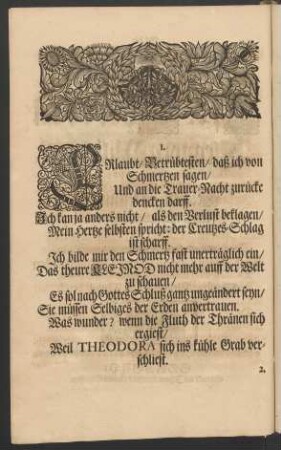 1.
ERlaubt/ Betrübtesten/ daß ich von
Schmertzen sagen/
Und an die Trauer-Nacht zurücke
dencken darff.
Ich kan ja anders nicht/ als den Verlust beklagen/
Mein Hertze selbsten spricht: der Creutzes-Schlag
ist scharff.
Ich bilde mir den Schmertz fast unerträglich ein/
Das theure KLEINOD nicht mehr auff der Welt
zu schauen/
Es sol nach Gottes Schluß gantz ungeändert seyn/
Sie müssen Selbiges der Erden anvertrauen.
Was wunder/ wenn die Fluth der Thränen sich
ergiest/
Weil THEODORA sich ins kühle Grab ver-
schliest.
2.